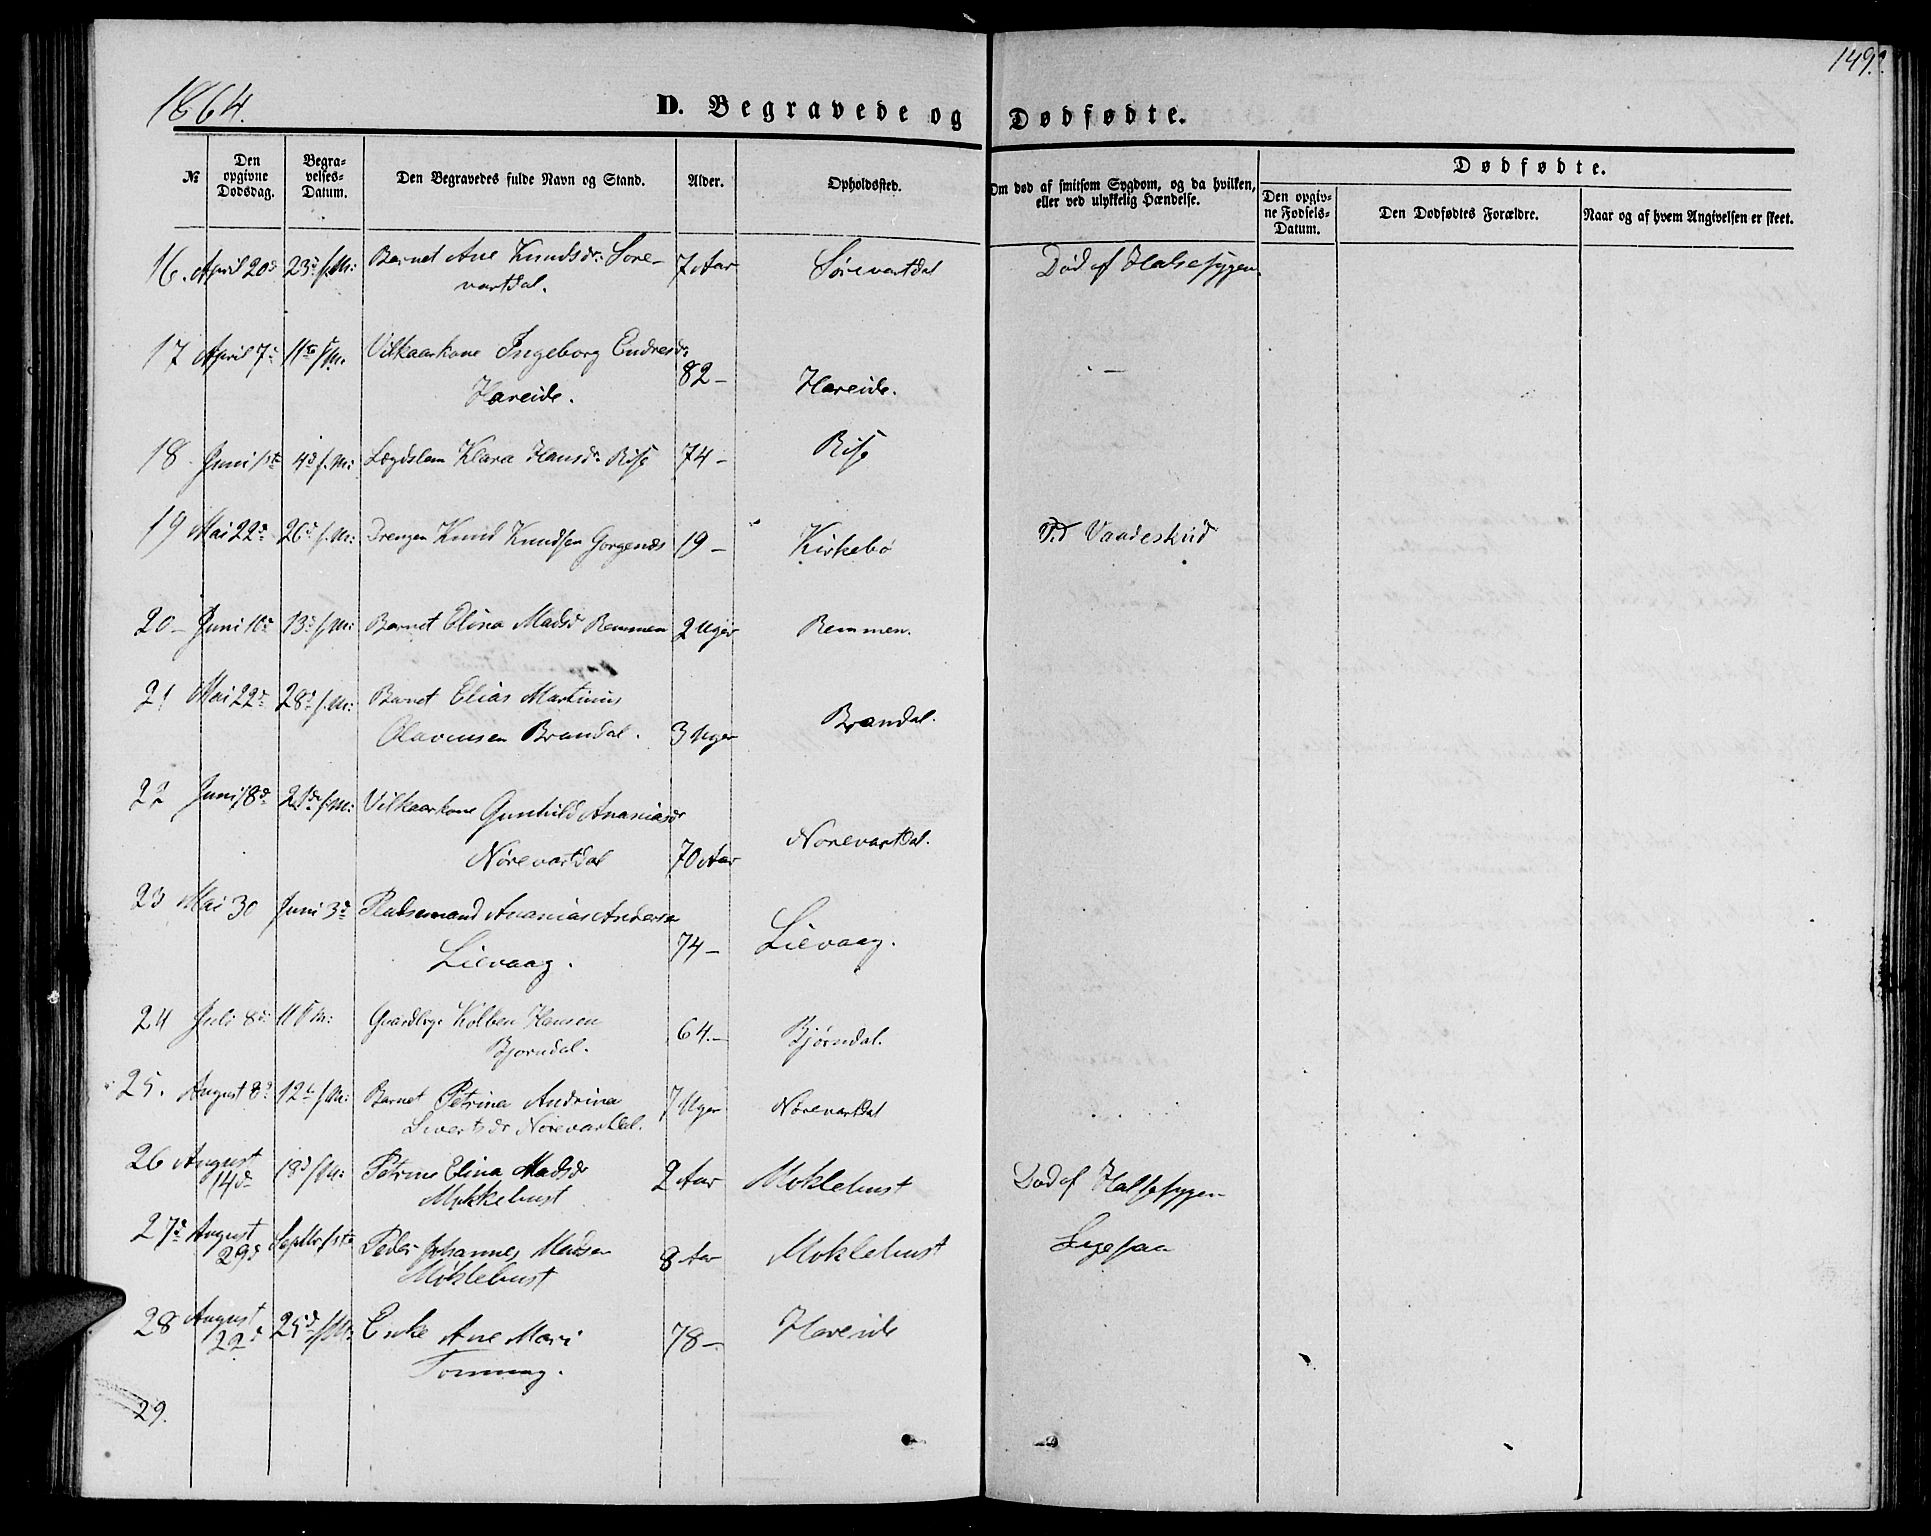 1864.
149.
D. Begravede og Dødfødte.
№
Den opgivne Dødsdag.
Begravelses-Datum.
Den Begravedes fulde Navn og Stand.
Alder.
Opholdssted.
Om død af smitsom Sygdom, og da hvilken, eller ved ulykkelig Hændelse.
Dødfødte.
Den opgivne Fødsels-Datum.
Den Dødfødtes Forældre.
Naar og af hvem Angivelsen er skeet.
16. April 20d 23d f.M: Barnet Ane Knudsdr: Søre- 7 Aar Sørevartdal Død af Halsesygen.
vartdal.
17 April 7d 11te f.M. Vilkaarkone Ingeborg Endresdr
Hareide. 82 – Hareide. –
18 Juni 1ste 4d f.M: Lægdslem Klara Hansdr Rise 74 – Rise
19 Mai 22d 26d f.M: Drengen Knud Knudsen Gorgenæs 19 – Kirkebø Vaadeskud
20 – Juni 10d 13d f.M: Barnet Elina Madsdr Remmen 2 Uger Remmen.
21 Mai 22d 28d f.M: Barnet Elias Martinus
Olavensen Brandal. 3 Uger Brandal.
22 Juni 18d 21d f.M: Vilkaarkone Gunhild Ananiasdr
Nørevartdal 70 Aar Nørevartdal.
23 Mai 30 Juni 3d Pladsemand Ananias Andersen
Lievaag. 74 – Lievaag.
24 Juli 8d 11 f.M: Kolben Hansen
Bjørndal. 64. – Bjørndal.
25. August 8d 12te f.M: Barnet Petrina Andrina 7 Uger Nørevartdal
Sivertsdr Nørevartdal.
26 August 14d 18d f.M: Petrine Elina Madsdr 2 Aar Møklebust Død af Halsesygen
Møklebust
27d August 29d Septbr 1ste Peder Johannes Madsen 8 Aar Møklebust Ligesaa
Møklebust
28 August 22d 25d f.M: Enke Ane Mari 78 – Hareide
Tonning.
29.